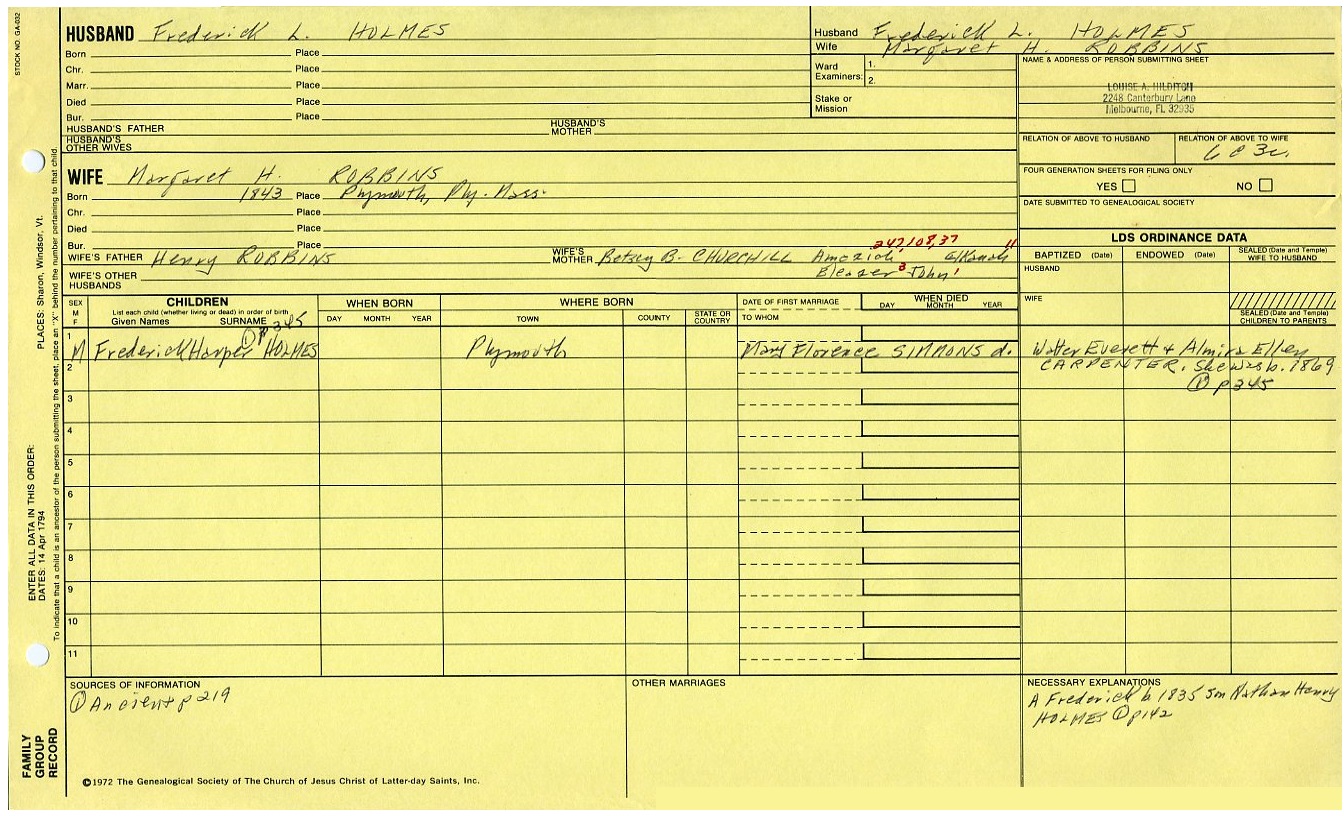 STOCK NO. GA-032
HUSBAND Frederick L. HOLMES
Born Place
Chr. Place
Marr. Place
Died Place
Bur. Place
HUSBAND'S FATHER HUSBAND'S MOTHER
HUSBAND'S OTHER WIVES
Husband Frederick L. HOLMES
Wife Margaret H. ROBBINS
Ward Examiners: 1.
2.
Stake or Mission
NAME & ADDRESS OF PERSON SUBMITTING SHEET
LOUISE A. HILDITCH
2248 Canterbury Lane
Melbourne, FL 32935
RELATION OF ABOVE TO HUSBAND RELATION OF ABOVE TO WIFE
6c3r.
FOUR GENERATION SHEETS FOR FILING ONLY
YES NO
DATE SUBMITTED TO GENEALOGICAL SOCIETY
WIFE Margaret H. ROBBINS
Born 1843 Place Plymouth, Ply. Mass.
Chr. Place
Died Place
Bur. Place
247,108,37 11
WIFE'S FATHER Henry ROBBINS WIFE'S MOTHER Betsey B. CHURCHILL Amaziah Elkanah
Eleazer 3 John 1
WIFE'S OTHER HUSBANDS
LDS ORDINANCE DATA
BAPTIZED (Date) ENDOWED (Date) SEALED (Date and Temple) WIFE TO HUSBAND
HUSBAND
WIFE
SEALED (Date and Temple) CHILDREN TO PARENTS
SEX M F
CHILDREN
List each child (whether living or dead) in order of birth
Given Names SURNAME
① p345
WHEN BORN
DAY MONTH YEAR
WHERE BORN
TOWN COUNTY STATE OR COUNTRY
DATE OF FIRST MARRIAGE
TO WHOM
WHEN DIED
DAY MONTH YEAR
1
M Frederick Harper HOLMES Plymouth Mary Florence SIMMONS d. Walter Everett & Almira Ellen
CARPENTER. She was b. 1869
① p345
2
3
4
5
6
7
8
9
10
11
SOURCES OF INFORMATION
① Ancient p219
OTHER MARRIAGES
NECESSARY EXPLANATIONS
A Frederick b 1835 son Nathan Henry
HOLMES ① p142
©1972 The Genealogical Society of The Church of Jesus Christ of Latter-day Saints, Inc.
FAMILY GROUP RECORD
ENTER ALL DATA IN THIS ORDER:
DATES: 14 Apr 1794
PLACES: Sharon, Windsor, Vt.
To indicate that a child is an ancestor of the person submitting the sheet, place an "X" behind the number pertaining to that child.